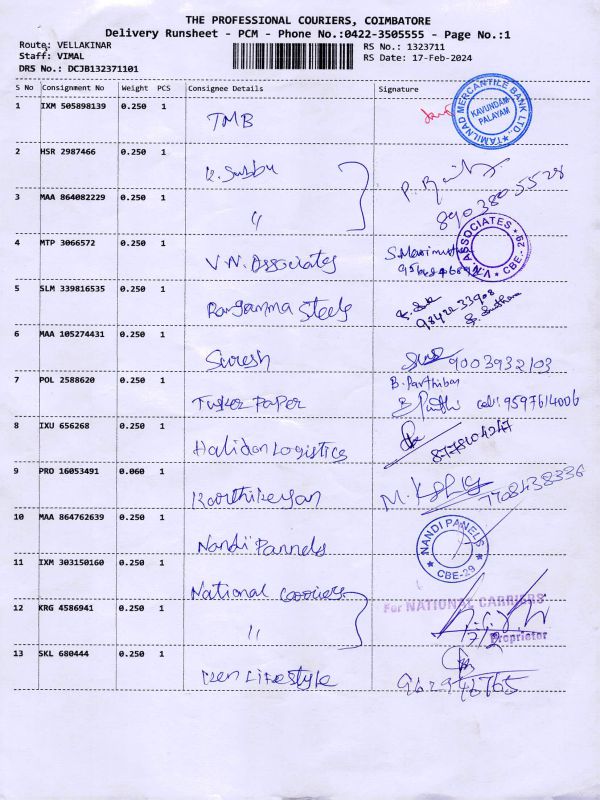 THE PROFESSIONAL COURIERS, COIMBATORE
Delivery Runsheet - PCM - Phone No.:0422-3505555 - Page No.:1
Route: VELLAKINAR RS No.: 1323711
Staff: VIMAL RS Date: 17-Feb-2024
DRS No.: DCJB132371101
S No Consignment No Weight PCS Consignee Details Signature
1 IXM 505898139 0.250 1 TMB
TAMILNAD MERCANTILE BANK LTD.,
KAVUNDAM
PALAYAM
2 HSR 2987466 0.250 1 K. Subbu
3 MAA 864082229 0.250 1 "
4 MTP 3066572 0.250 1 V.N. Associates
V.N. ASSOCIATES CBE-29
5 SLM 339816535 0.250 1 Rangamma Steels
9842233908
6 MAA 105274431 0.250 1 Suresh 9003932103
7 POL 2588620 0.250 1 Tusker Paper B. Parthiban
cell: 9597614006
8 IXU 656268 0.250 1 Halidon Logistics 8778104247
9 PRO 16053491 0.060 1 Karthikeyan 7708438336
10 MAA 864762639 0.250 1 Nandi Pannels
NANDI PANELS
CBE-29
11 IXM 303150160 0.250 1 National Carriers
12 KRG 4586941 0.250 1 "
For NATIONAL CARRIERS
17/2
Proprietor
13 SKL 680444 0.250 1 Ken Lifestyle